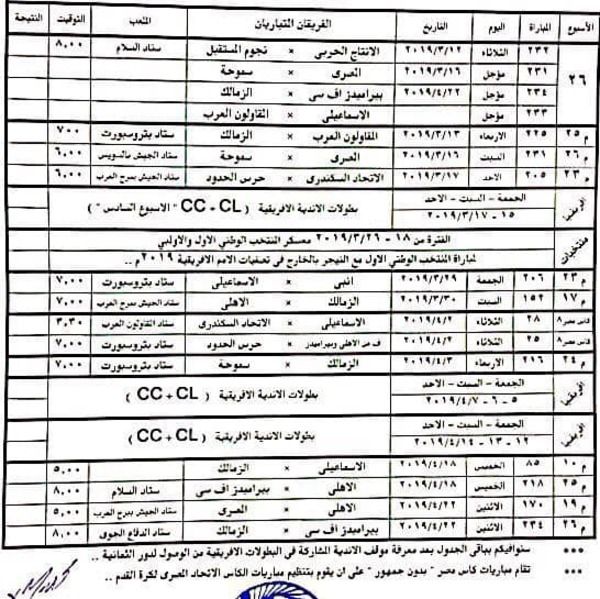 الأسبوع المباراة اليوم التاريخ الفريقان المتباريان الملعب التوقيت النتيجة
٢٦ ٢٣٢ الثلاثاء ٢٠١٩/٣/١٢ الانتاج الحربى × نجوم المستقبل ستاد السلام ٨,٠٠
٢٣١ مؤجل ٢٠١٩/٣/١٦ المصرى × سموحة
٢٣٤ مؤجل ٢٠١٩/٤/٢٢ بيراميدز اف سى × الزمالك
٢٣٣ مؤجل الاسماعيلى × المقاولون العرب
م ٢٥ ٢٢٥ الاربعاء ٢٠١٩/٣/١٣ المقاولون العرب × الزمالك ستاد بتروسبورت ٧,٠٠
م ٢٦ ٢٣١ السبت ٢٠١٩/٣/١٦ المصرى × سموحة ستاد الجيش بالسويس ٦,٠٠
م ٢٣ ٢٠٥ الاحد ٢٠١٩/٣/١٧ الاتحاد السكندرى × حرس الحدود ستاد الجيش ببرج العرب ٦,٠٠
إفريقيا الجمعة – السبت – الاحد
١٥ – ٢٠١٩/٣/١٧ بطولات الاندية الافريقية ( CC + CL ) " الاسبوع السادس "
منتخبات الفترة من ١٨ – ٢٠١٩/٣/٢٦ معسكر المنتخب الوطني الاول والاولمبي
لمباراة المنتخب الوطني الاول مع النيجر بالخارج فى تصفيات الامم الافريقية ٢٠١٩ م ..
م ٢٣ ٢٠٦ الجمعة ٢٠١٩/٣/٢٩ انبى × الاسماعيلى ستاد بتروسبورت ٧,٠٠
م ١٧ ١٥٢ السبت ٢٠١٩/٣/٣٠ الزمالك × الاهلى ستاد الجيش ببرج العرب ٧,٠٠
كاس مصر ٨ ٢٨ الثلاثاء ٢٠١٩/٤/٢ الاسماعيلى × الاتحاد السكندرى ستاد المقاولون العرب ٣,٣٠
كاس مصر ٨ ٢٥ الثلاثاء ٢٠١٩/٤/٢ ف من الاهلى وبيراميدز × حرس الحدود ستاد بتروسبورت ٧,٠٠
م ٢٤ ٢١٦ الاربعاء ٢٠١٩/٤/٣ الزمالك × سموحة ستاد بتروسبورت ٧,٠٠
إفريقيا الجمعة – السبت – الاحد
٥ – ٦ – ٢٠١٩/٤/٧ بطولات الاندية الافريقية ( CC + CL )
إفريقيا الجمعة – السبت – الاحد
١٢ – ١٣ – ٢٠١٩/٤/١٤ بطولات الاندية الافريقية ( CC + CL )
م ١٠ ٨٥ الخميس ٢٠١٩/٤/١٨ الاسماعيلى × الزمالك ٥,٠٠
م ٢٥ ٢١٨ الخميس ٢٠١٩/٤/١٨ الاهلى × بيراميدز اف سى ستاد السلام ٨,٠٠
م ١٩ ١٧٠ الاثنين ٢٠١٩/٤/٢٢ الاهلى × المصرى ستاد الجيش ببرج العرب ٥,٠٠
م ٢٦ ٢٣٤ الاثنين ٢٠١٩/٤/٢٢ بيراميدز اف سى × الزمالك ستاد الدفاع الجوى ٨,٠٠
*** سنوافيكم بباقى الجدول بعد معرفة موقف الاندية المشاركة فى البطولات الافريقية من الوصول لدور الثمانية ..
*** تقام مباريات كاس مصر " بدون جمهور " على ان يقوم بتنظيم مباريات الكاس الاتحاد المصرى لكرة القدم ..